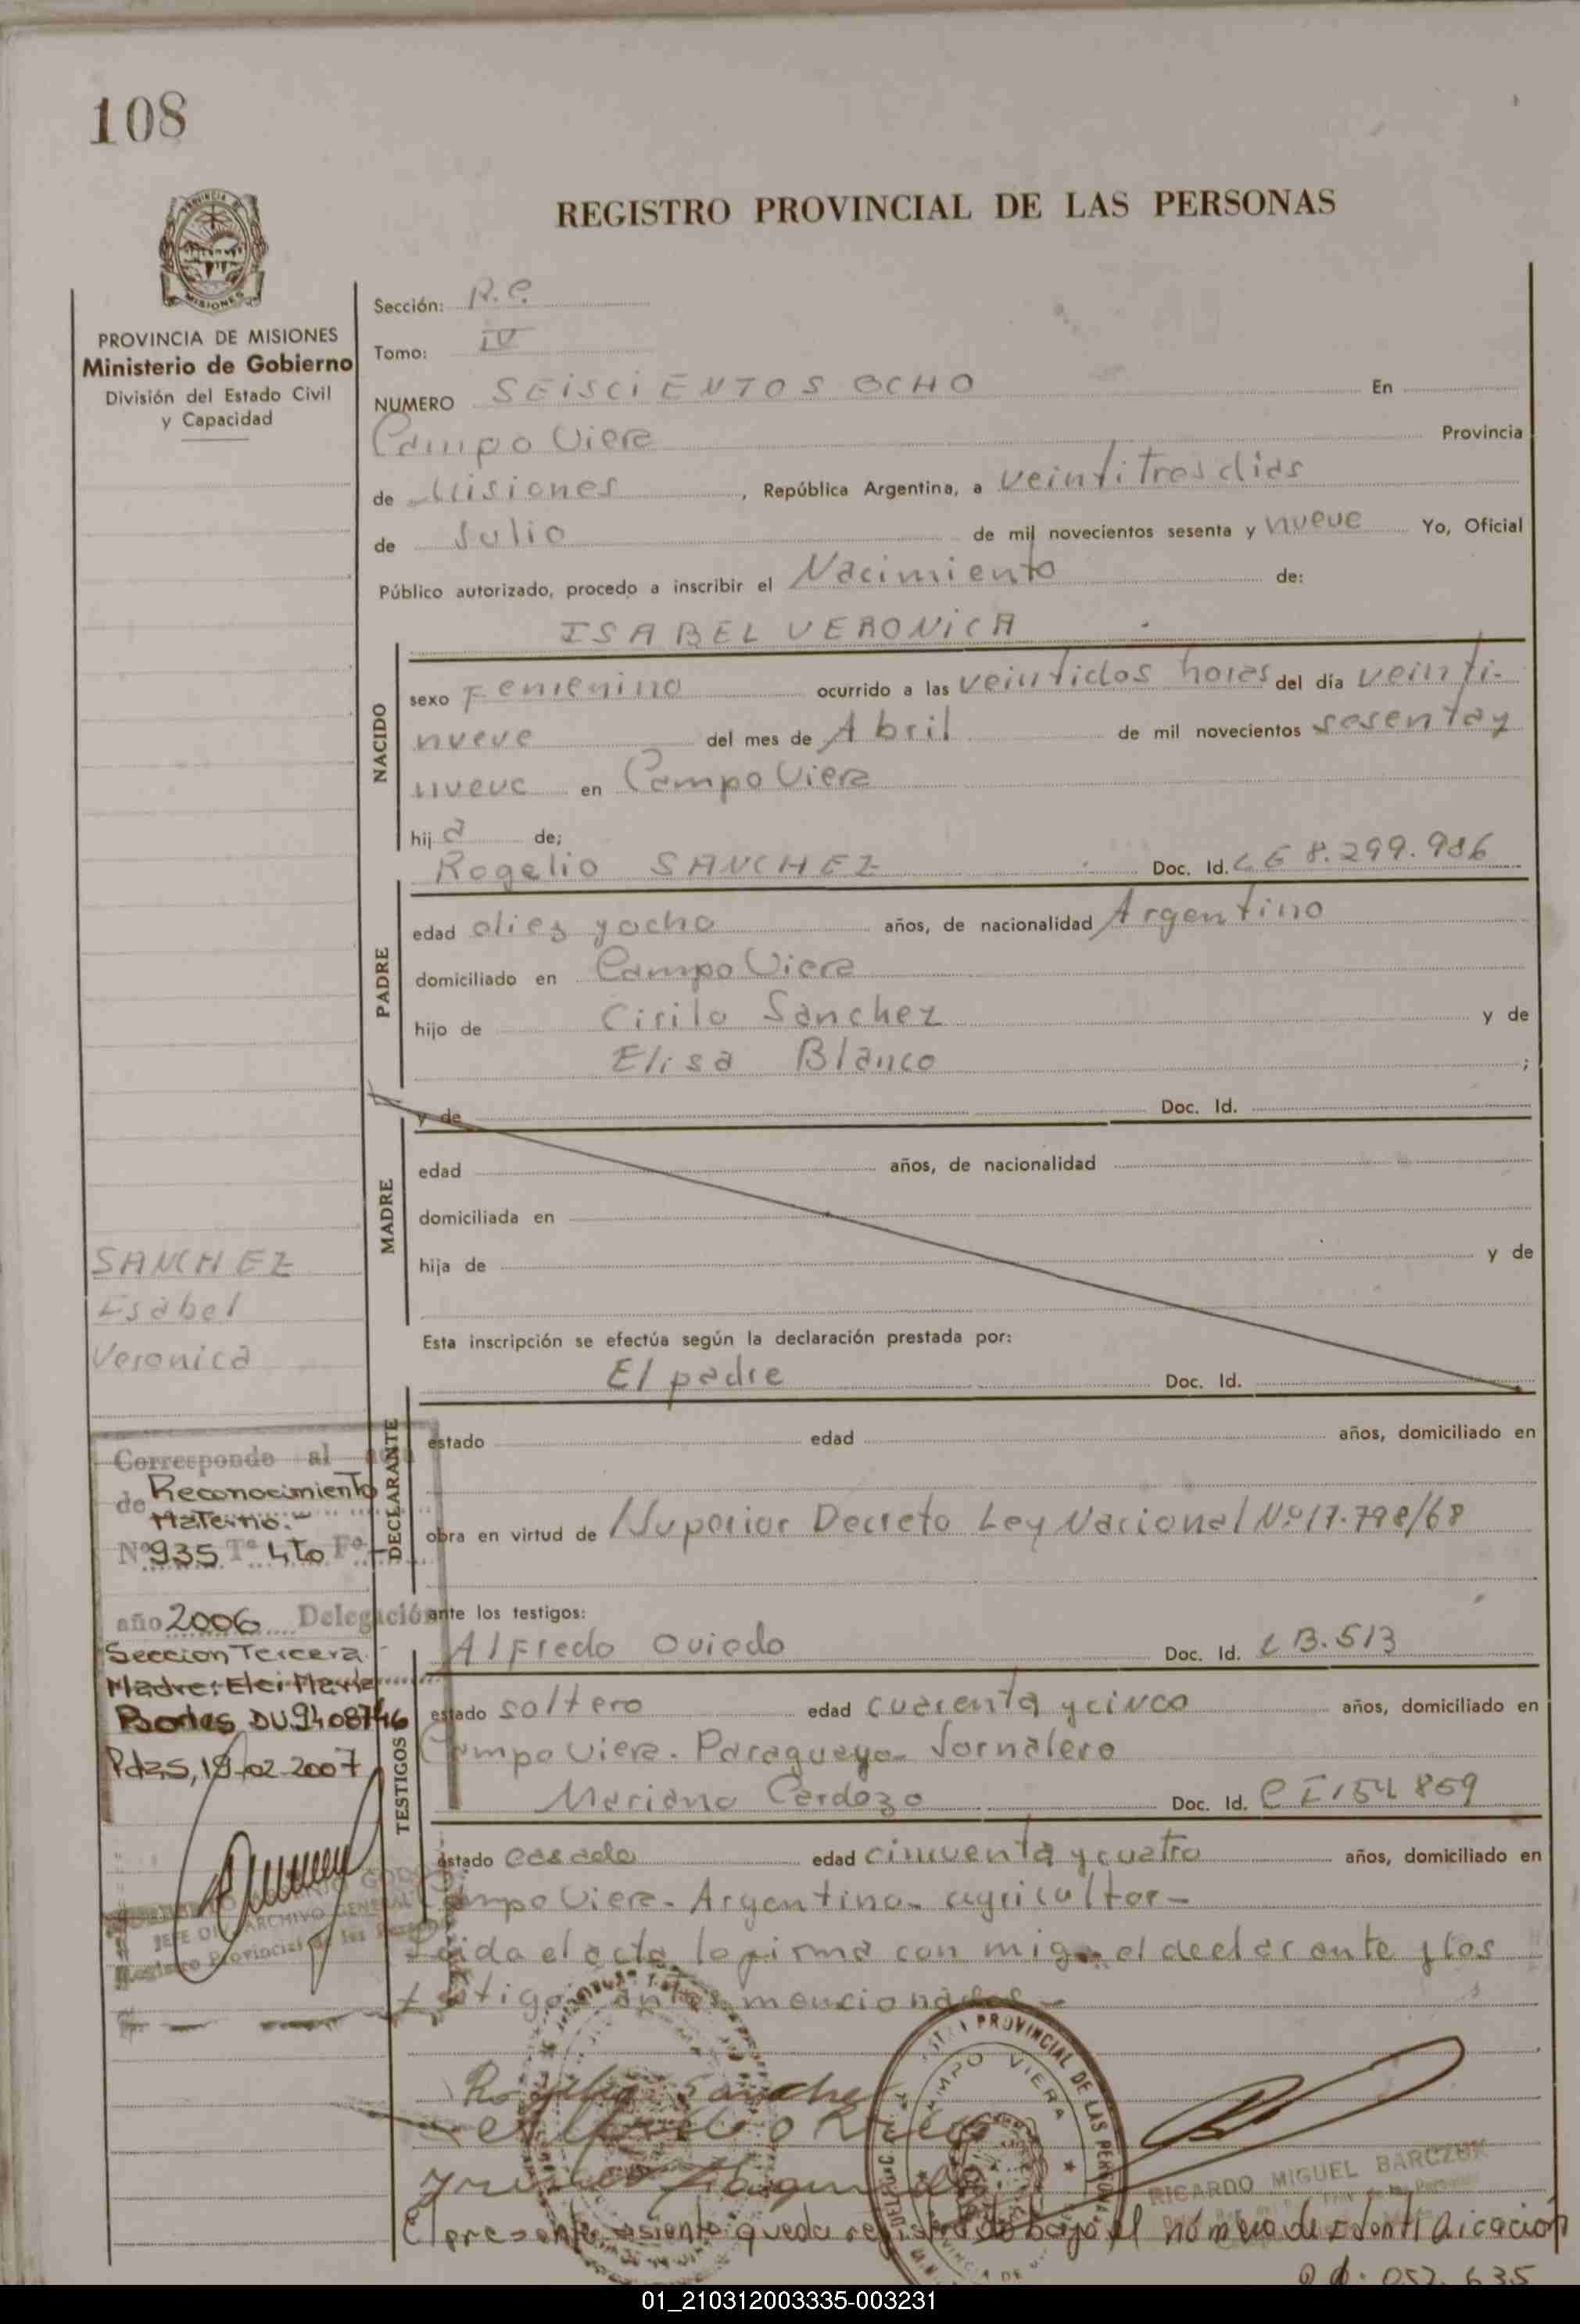 108
REGISTRO PROVINCIAL DE LAS PERSONAS
PROVINCIA DE MISIONES
Ministerio de Gobierno
División del Estado Civil
y Capacidad
Sección: R.C.
Tomo: IV
NUMERO SEISCIENTOS OCHO En
Campo Viera Provincia
de Misiones, República Argentina, a veintitres dias
de Julio de mil novecientos sesenta y nueve Yo, Oficial
Público autorizado, procedo a inscribir el Nacimiento de:
ISABEL VERONICA
NACIDO
sexo Femenino ocurrido a las veintidos horas del día veinti-
nueve del mes de Abril de mil novecientos sesenta y
nueve en Campo Viera
hija de;
Rogelio SANCHEZ Doc. Id. LE 8.299.986
PADRE
edad diez y ocho años, de nacionalidad Argentino
domiciliado en Campo Viera
hijo de Cirilo Sanchez y de
Elisa Blanco ;
y de Doc. Id.
MADRE
edad años, de nacionalidad
domiciliada en
hija de y de
Esta inscripción se efectúa según la declaración prestada por:
El padre Doc. Id.
DECLARANTE
estado edad años, domiciliado en
obra en virtud de /Superior Decreto Ley Nacional Nº 17.798/68
ante los testigos:
Alfredo Oviedo Doc. Id. LB.513
TESTIGOS
estado soltero edad cuarenta y cinco años, domiciliado en
Campo Viera. Paraguayo- Jornalero
Mariano Cardozo Doc. Id. CI 154 859
estado casado edad cincuenta y cuatro años, domiciliado en
Campo Viera- Argentino- agricultor-
Leida el acta la firma con migo el declarante y los
testigos antes mencionados-
SANCHEZ
Isabel
Veronica
Corresponde al acta
de Reconocimiento
Materno.-
Nº 935 Tº 4to Fº
año 2006 Delegación
Seccion Tercera
Madre: Elci Maria
DU.9408746
Pdas, 19-02-2007
JEFE ARCHIVO GENERAL
Registro Provincial de las
Rogelio Sanchez
PROVINCIAL DE LAS PERSONAS
CAMPO VIERA
RICARDO MIGUEL BARCZUK
El presente asiento queda registrado bajo el número de Identificacion
052.635
01_210312003335-003231